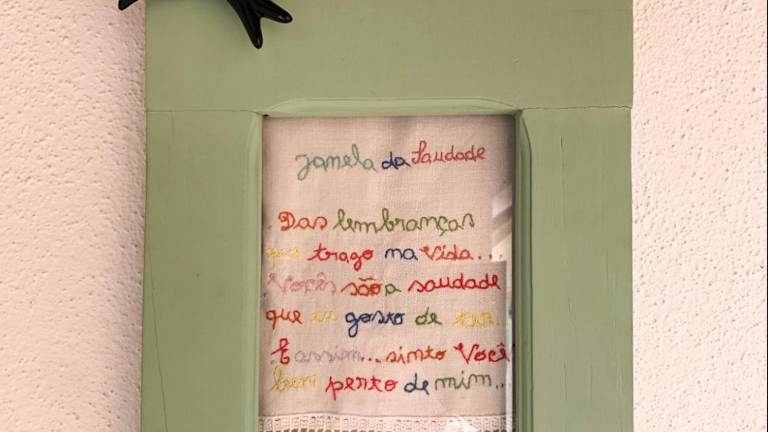 Janela da Saudade
Das lembranças
que trago na vida...
Vocês são a saudade
que eu gosto de ter...
E assim... sinto Você
bem perto de mim...